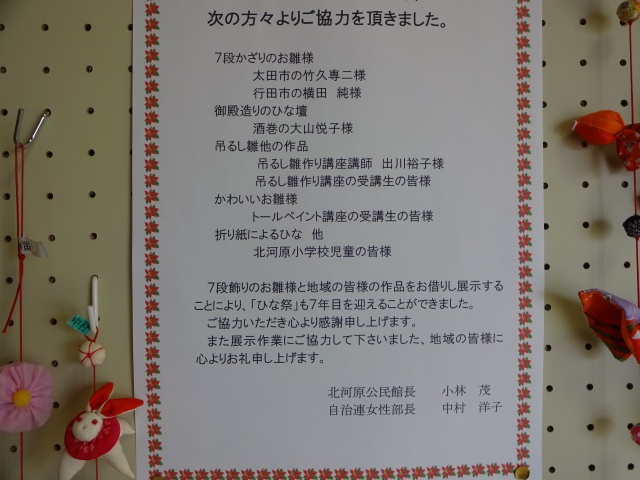 次の方々よりご協力を頂きました。
7段かざりのお雛様
太田市の竹久専二様
行田市の横田　純様
御殿造りのひな壇
酒巻の大山悦子様
吊るし雛他の作品
吊るし雛作り講座講師　出川裕子様
吊るし雛作り講座の受講生の皆様
かわいいお雛様
トールペイント講座の受講生の皆様
折り紙によるひな　他
北河原小学校児童の皆様
7段飾りのお雛様と地域の皆様の作品をお借りし展示する
ことにより、「ひな祭」も7年目を迎えることができました。
ご協力いただき心より感謝申し上げます。
また展示作業にご協力して下さいました、地域の皆様に
心よりお礼申し上げます。
北河原公民館長　　小林　茂
自治連女性部長　　中村　洋子